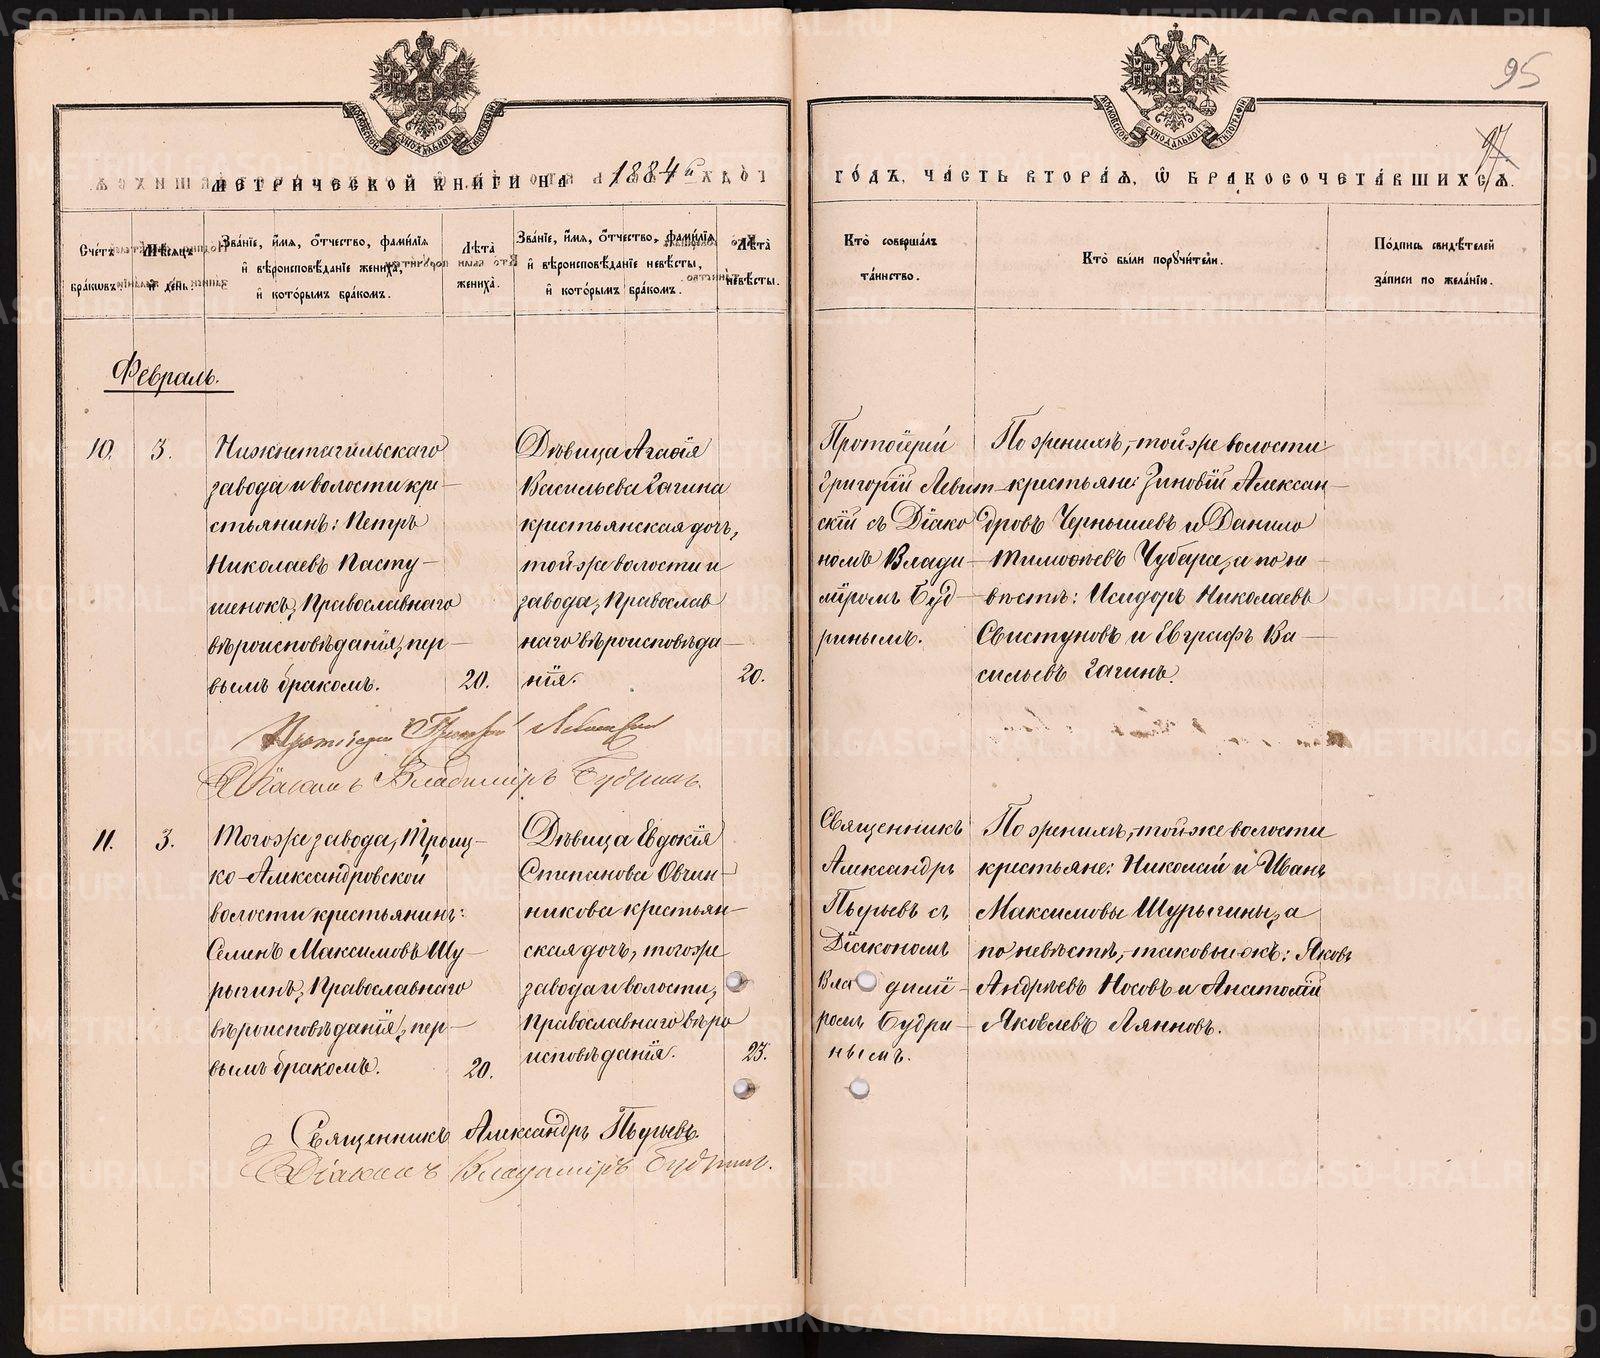 95
97
МЕТРИЧЕСКОЙ КНИГИ НА 1884й
ГОДЪ, ЧАСТЬ ВТОРАЯ, Ѡ БРАКОСОЧЕТАВШИХСЯ.
Счетъ браковъ.
Мѣсяцъ и день.
Званіе, имя, отчество, фамилія
и вѣроисповѣданіе жениха,
и которымъ бракомъ.
Лѣта
жениха.
Званіе, имя, отчество, фамилія
и вѣроисповѣданіе невѣсты,
и которымъ бракомъ.
Лѣта
невѣсты.
Кто совершалъ
таинство.
Кто были поручители.
Подпись свидѣтелей
записи по желанію.
Февраль.
10. 3.
Нижнетагильскаго
завода и волости кре-
стьянинъ: Петръ
Николаевъ Пасту-
шенокъ, Православнаго
вѣроисповѣданія, пер-
вымъ бракомъ.
20.
Дѣвица Агаѳія
Васильева Гагина
крестьянская дочь,
той же волости и
завода, Православ
наго вѣроисповѣда-
нія.
20.
Протоіерей
Григорій Левит-
скій съ Діако
номъ Влади-
міромъ Буд-
ринымъ.
По женихѣ, той же волости
крестьяне: Зиновій Алексан-
дровъ Чернышевъ и Данило
Тимоѳеевъ Чубара, а по не-
вѣстѣ: Исидоръ Николаевъ
Свистуновъ и Евграфъ Ва-
сильевъ Гагинъ.
Протоіерей Григорій Левитскій
Діаконъ Владиміръ Будринъ.
11. 3.
Того же завода, Троиц-
ко-Александровской
волости крестьянинъ:
Семенъ Максимовъ Шу-
рыгинъ, Православнаго
вѣроисповѣданія, пер-
вымъ бракомъ.
20.
Дѣвица Евдокія
Степанова Овчин-
никова крестьян-
ская дочь, того же
завода и волости,
Православнаго вѣро
исповѣданія.
23.
Священникъ
Александръ
Пьурьевъ съ
Діакономъ
Владимі-
ромъ Будри-
нымъ.
По женихѣ, той же волости
крестьяне: Николай и Иванъ
Максимовы Шурыгины, а
по невѣстѣ, таковы же: Яковъ
Андреевъ Носовъ и Анатолій
Яковлевъ Ляпновъ.
Священникъ Александръ Пьурьевъ.
Діаконъ Владиміръ Будринъ.
METRIKI.GASO-URAL.RU